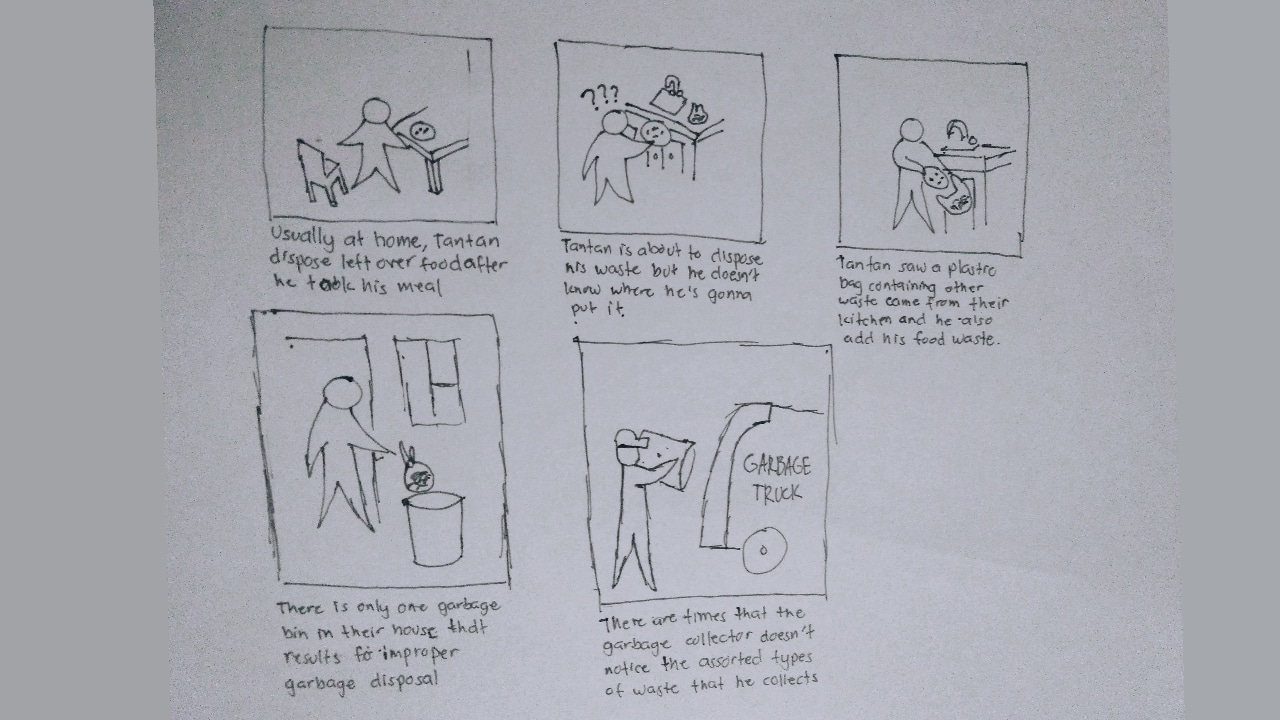 Usually at home, Tantan
dispose left over food after
he took his meal
???
Tantan is about to dispose
his waste but he doesn't
know where he's gonna
put it.
Tantan saw a plastic
bag containing other
waste came from their
kitchen and he also
add his food waste.
There is only one garbage
bin in their house that
results fo improper
garbage disposal
GARBAGE
TRUCK
There are times that the
garbage collector doesn't
notice the assorted types
of waste that he collects